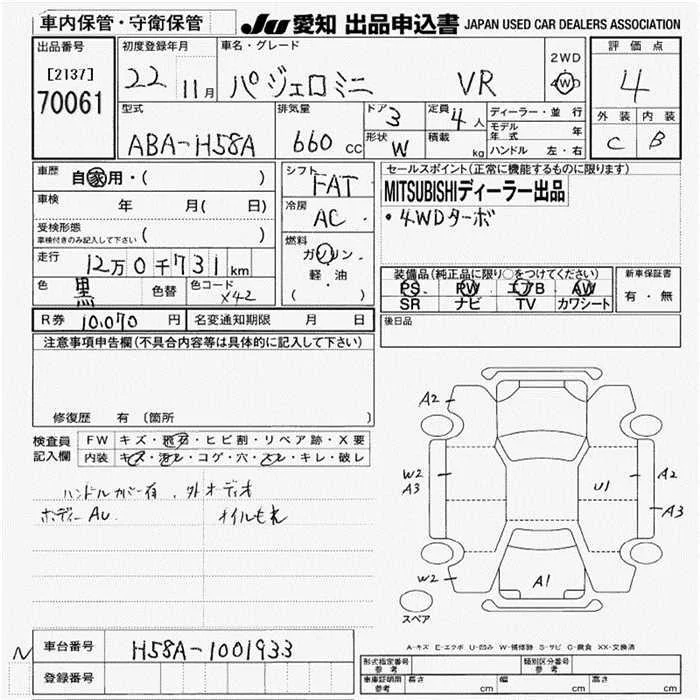 車内保管・守衛保管
JU 愛知 出品申込書 JAPAN USED CAR DEALERS ASSOCIATION
出品番号
[2137]
70061
初度登録年月
22 11月
車名・グレード
パジェロミニ VR
2WD
4WD
評価点
4
外装 内装
C B
型式
ABA-H58A
排気量
660 CC
ドア 3
形状 W
定員 4人
積載 kg
ディーラー・並行
モデル年式 年
ハンドル 左・右
車歴
自家用・( )
車検 年 月( 日)
受検形態
車検付きのみ記入して下さい ( )
走行
12万0千731km
色 黒 色替 色コード X42
シフト
FAT
冷房
AC
燃料
ガソリン
軽・油
( )
セールスポイント(正常に機能するものに限ります)
MITSUBISHIディーラー出品
・4WDターボ
装備品(純正品に限り○をつけてください)
PS PW エアB AW
SR ナビ TV カワシート
新車保証書
有・無
R券 10,070 円 名変通知期限 月 日
後日品
注意事項申告欄(不具合内容等は具体的に記入して下さい)
修復歴 有 〔箇所 〕
検査員記入欄
FW キズ・飛石・ヒビ割・リペア跡・X要
内装 キズ・汚レ・コゲ・穴・スレ・キレ・破レ
ハンドルカバー有、外オーディオ
ボディーAU オイルもれ
A2
W2
A3
U1
A2
A3
W2
A1
スペア
A-キズ E-エクボ U-凹み W-補修跡 S-サビ C-腐食 XX-交換済
N
車台番号 H58A-1001933
登録番号
形式指定番号 参考
類別区分番号 参考
車庫証明用 参考 長さ cm 幅 cm 高さ cm